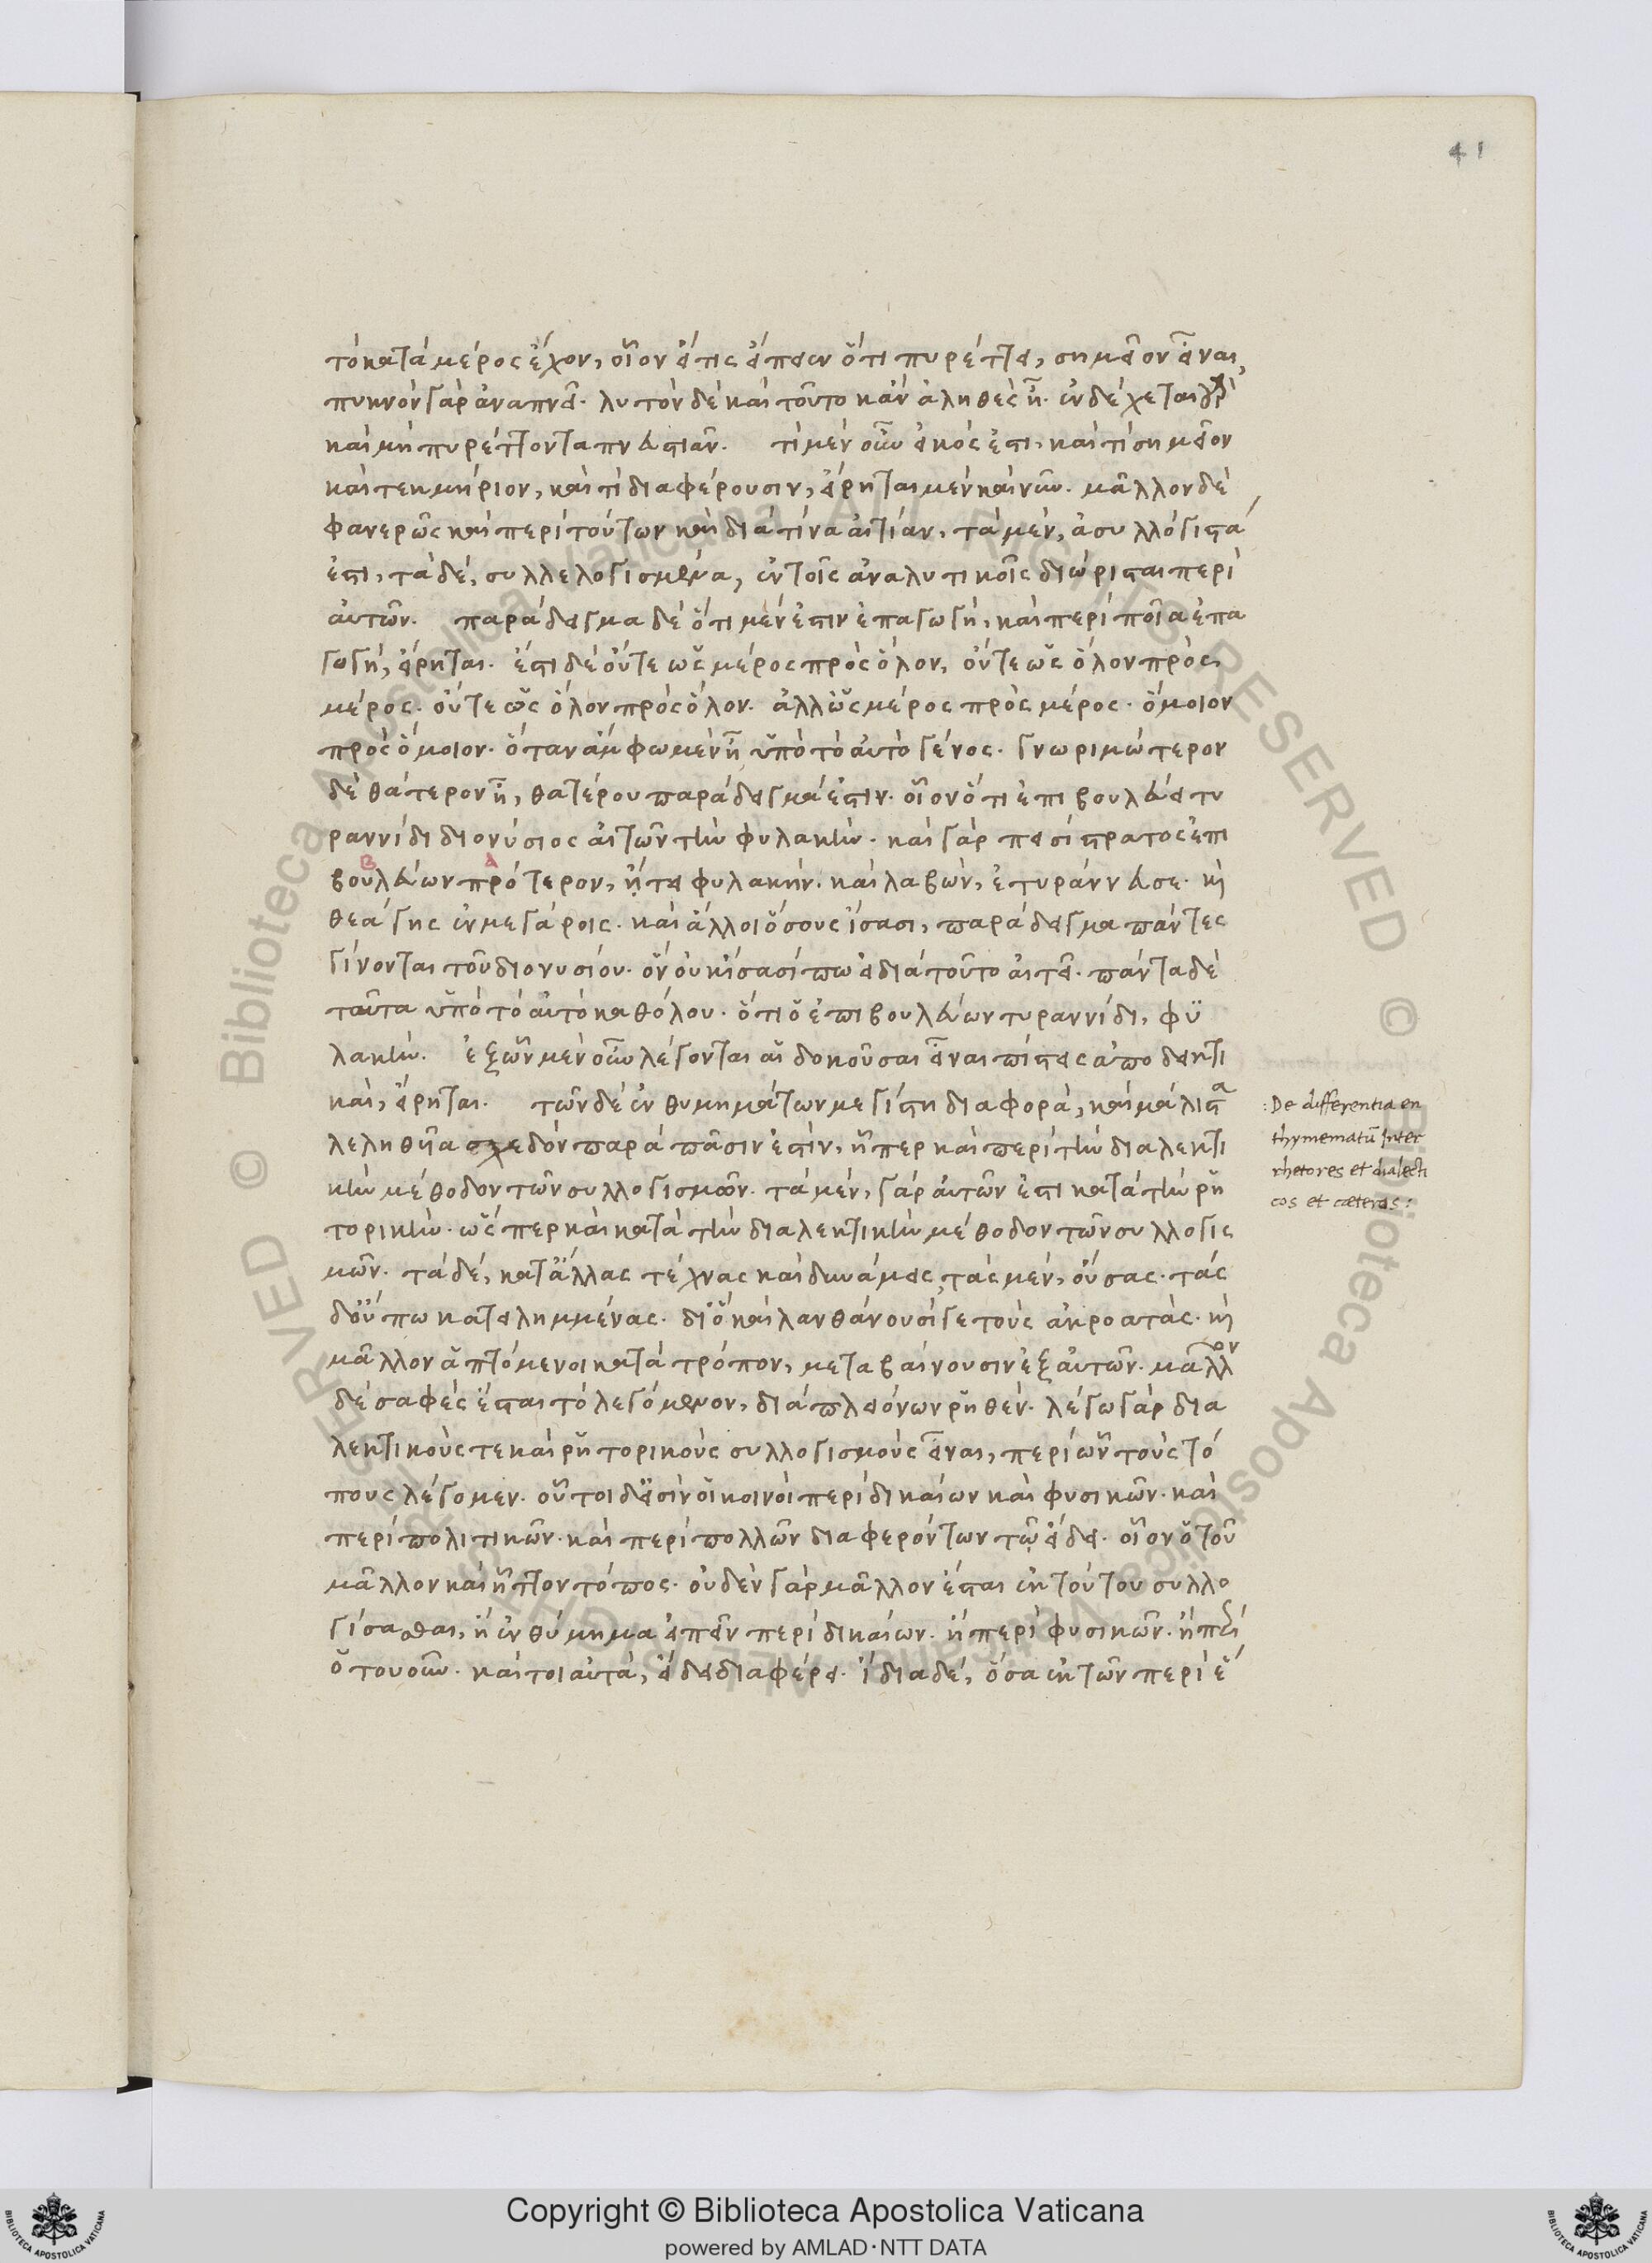 41
τὸ κατὰ μέρος ἔχον, οἷον εἴ τις εἴπειεν ὅτι πυρέττει, σημεῖον εἶναι,
πυκνὸν γὰρ ἀναπνεῖ. λυτὸν δὲ καὶ τοῦτο κἂν ἀληθὲς ᾖ. ἐνδέχεται γὰρ
καὶ μὴ πυρέττοντα πνευστιᾶν. τί μὲν οὖν εἰκός ἐστι, καὶ τί σημεῖον
καὶ τεκμήριον, καὶ τί διαφέρουσιν, εἴρηται μὲν καὶ νῦν. μᾶλλον δὲ
φανερῶς καὶ περὶ τούτων καὶ διὰ τίνα αἰτίαν, τὰ μὲν, ἀσυλλόγιστά
ἐστι, τὰ δὲ, συλλελογισμένα, ἐν τοῖς ἀναλυτικοῖς διώρισται περὶ
αὐτῶν. παράδειγμα δὲ ὅτι μέν ἐστιν ἐπαγωγὴ, καὶ περὶ ποῖα ἐπα
γωγὴ, εἴρηται. ἔστι δὲ οὔτε ὡς μέρος πρὸς ὅλον, οὔτε ὡς ὅλον πρὸς
μέρος. οὔτε ὡς ὅλον πρὸς ὅλον. ἀλλ' ὡς μέρος πρὸς μέρος. ὅμοιον
πρὸς ὅμοιον. ὅταν ἄμφω μὲν ᾖ ὑπὸ τὸ αὐτὸ γένος. γνωριμώτερον
δὲ θάτερον ᾖ, θατέρου παράδειγμά ἐστιν. οἷον ὅτι ἐπιβουλεύει τυ
ραννίδι διονύσιος αἰτῶν τὴν φυλακήν. καὶ γὰρ πεισίστρατος ἐπι
β α
βουλεύων πρότερον, ᾔτει φυλακήν. καὶ λαβὼν, ἐτυράννευσε. καὶ
θεάγης ἐν μεγάροις. καὶ ἄλλοι ὅσους ἴσασι, παράδειγμα πάντες
γίνονται τοῦ διονυσίου. ὃν οὐκ ἴσασί πω εἰ διὰ τοῦτο αἰτεῖ. πάντα δὲ
ταῦτα ὑπὸ τὸ αὐτὸ καθόλου. ὅτι ὁ ἐπιβουλεύων τυραννίδι, φυ
λακήν. ἐξ ὧν μὲν οὖν λέγονται αἱ δοκοῦσαι εἶναι πίστεις ἀποδεικτι
καὶ, εἴρηται. τῶν δὲ ἐνθυμημάτων μεγίστη διαφορὰ, καὶ μάλιστα
λεληθυῖα σχεδὸν παρὰ πᾶσιν ἐστὶν, ἥπερ καὶ περὶ τὴν διαλεκτι
κὴν μέθοδον τῶν συλλογισμῶν. τὰ μὲν, γὰρ αὐτῶν ἐστι κατὰ τὴν ῥη
τορικήν. ὥσπερ καὶ κατὰ τὴν διαλεκτικὴν μέθοδον τῶν συλλογις
μῶν. τὰ δὲ, κατ' ἄλλας τέχνας καὶ δυνάμεις, τὰς μὲν, οὔσας. τὰς
δ' οὔπω κατειλημμένας. διὸ καὶ λανθάνουσί γε τοὺς ἀκροατάς. καὶ
μᾶλλον ἁπτόμενοι κατὰ τρόπον, μεταβαίνουσιν ἐξ αὐτῶν. μᾶλλον
δὲ σαφὲς ἔσται τὸ λεγόμενον, διὰ πλειόνων ῥηθέν. λέγω γὰρ δια
λεκτικούς τε καὶ ῥητορικοὺς συλλογισμοὺς εἶναι, περὶ ὧν τοὺς τό
πους λέγομεν. οὗτοι δ' εἰσὶν οἱ κοινοὶ περὶ δικαίων καὶ φυσικῶν. καὶ
περὶ πολιτικῶν. καὶ περὶ πολλῶν διαφερόντων τῷ εἴδει. οἷον ὁ τοῦ
μᾶλλον καὶ ἧττον τόπος. οὐδὲν γὰρ μᾶλλον ἔσται ἐκ τούτου συλλο
γίσασθαι, ἢ ἐνθύμημα εἰπεῖν περὶ δικαίων. ἢ περὶ φυσικῶν. ἢ περὶ
ὁτουοῦν. καίτοι αὐτὰ, εἴδει διαφέρει. ἴδια δὲ, ὅσα ἐκ τῶν περὶ ἕ
:De differentia en
thymematũ inter
rhetores et dialecti
cos et cæteros:
Copyright © Biblioteca Apostolica Vaticana
powered by AMLAD·NTT DATA